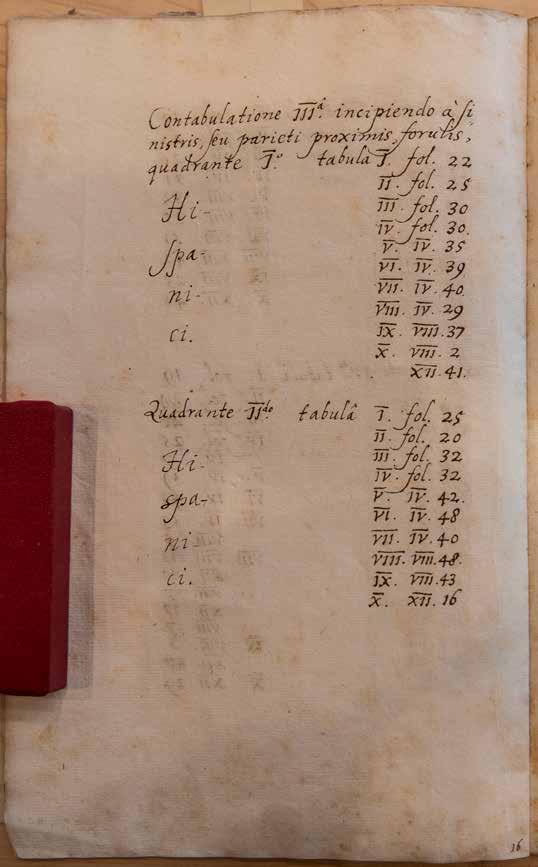 Contabulatione III.â incipiendo à si
nistris, seu parieti proximis, forulis,
quadrante I.º tabulâ I. fol. 22
II. fol. 25
Hi- III. fol. 30
IV. fol. 30.
Spa- V. IV. 35
VI. IV. 39
ni- VII. IV. 40.
VIII. IV. 29
ci. IX. VIII. 37
X. VIII. 2
XII. 41.
Quadrante II.do tabulâ I. fol. 25
II. fol. 20
Hi- III. fol. 32
IV. fol. 32
spa- V. IV. 42.
VI. IV. 48
ni VII. IV. 40
VIII. VIII. 48.
ci. IX. VIII. 43
X. XII. 16
16